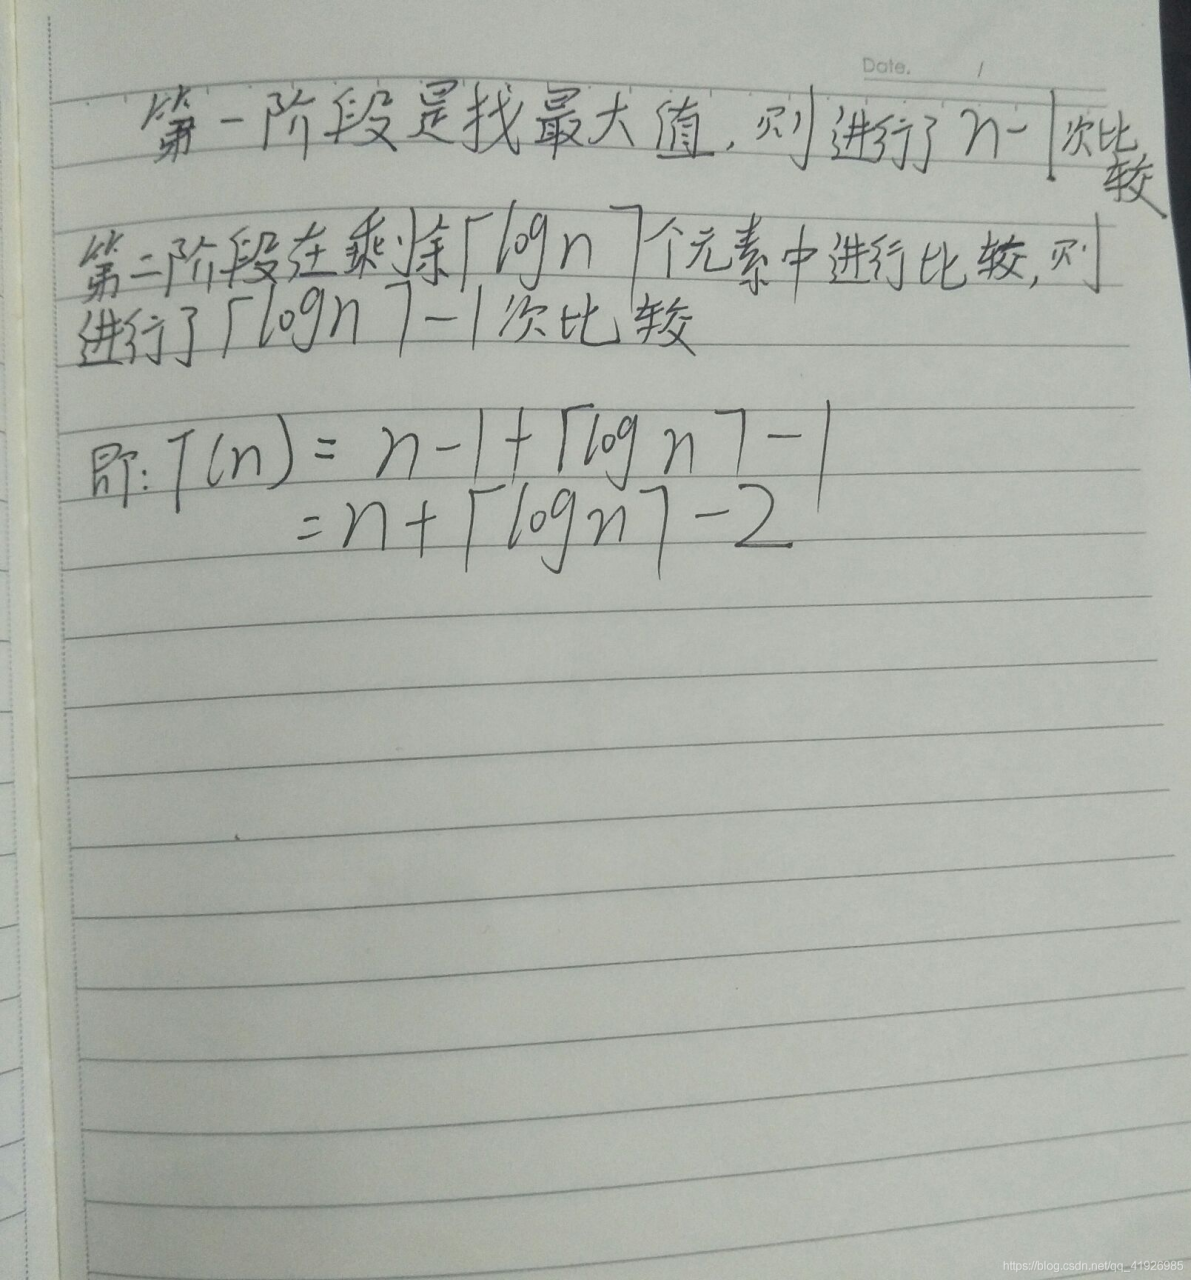 Date. /
第一阶段是找最大值,则进行了n-1次比
较
第二阶段在乘除⌈log n⌉个元素中进行比较,则
进行了⌈log n⌉-1次比较
即:T(n) = n-1+⌈log n⌉-1
=n+⌈log n⌉-2
https://blog.csdn.net/qq_41926985